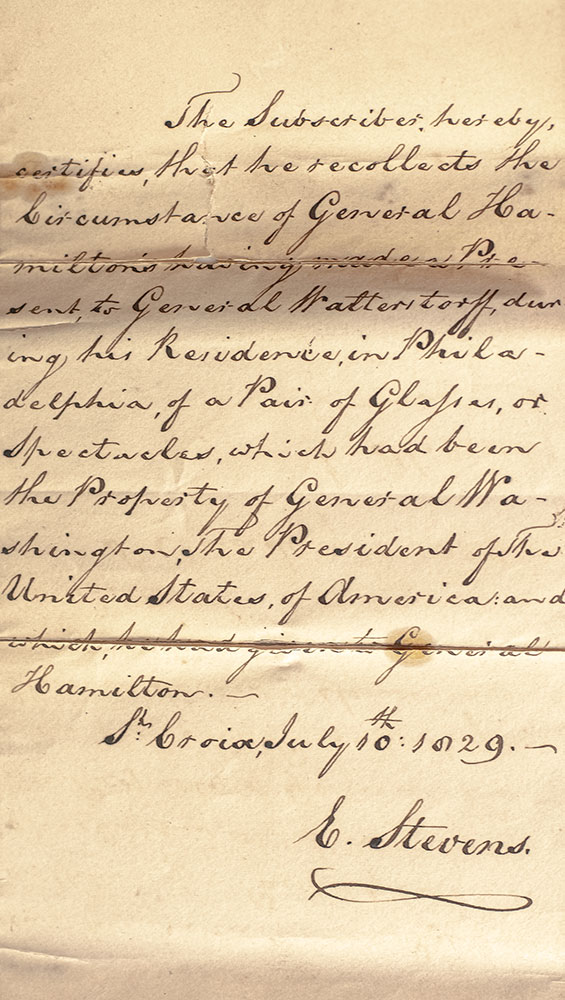 The Subscriber, hereby,
certifies, that he recollects the
Circumstance of General Ha-
milton's having made a Pre-
sent, to General Walterstorff, dur
ing his Residence, in Phila-
delphia, of a Pair of Glasses, or
Spectacles, which had been
the Property of General Wa-
shington, The President of The
United States, of America: and
which, he had given to General
Hamilton. —
St. Croix, July 10th: 1829. —
E. Stevens.